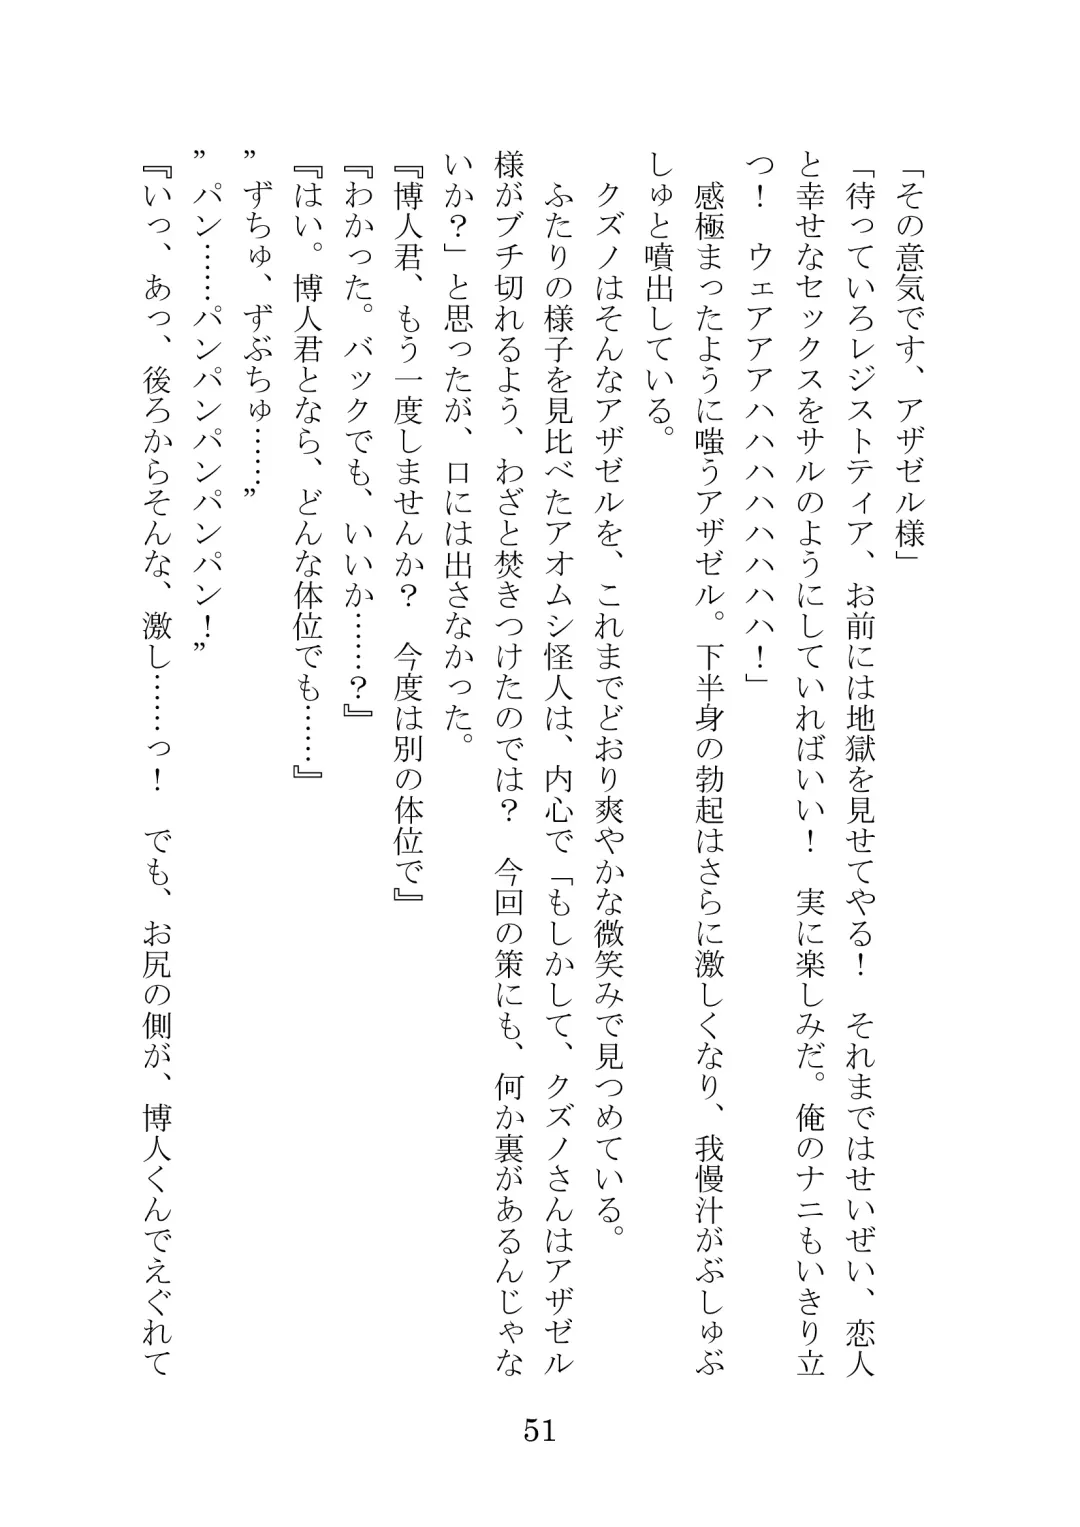 「その意気です、アザゼル様」
「待っていろレジストティア、お前には地獄を見せてやる！　それまではせいぜい、恋人
と幸せなセックスをサルのようにしていればいい！　実に楽しみだ。俺のナニもいきり立
つ！　ウェアアアハハハハハハハハ！」
　感極まったように嗤うアザゼル。下半身の勃起はさらに激しくなり、我慢汁がぶしゅぶ
しゅと噴出している。
　クズノはそんなアザゼルを、これまでどおり爽やかな微笑みで見つめている。
　ふたりの様子を見比べたアオムシ怪人は、内心で「もしかして、クズノさんはアザゼル
様がブチ切れるよう、わざと焚きつけたのでは？　今回の策にも、何か裏があるんじゃな
いか？」と思ったが、口には出さなかった。
『博人君、もう一度しませんか？　今度は別の体位で』
『わかった。バックでも、いいか……？』
『はい。博人君となら、どんな体位でも……』
”ずちゅ、ずぶちゅ……”
”パン……パンパンパンパンパン！”
『いっ、あっ、後ろからそんな、激し……っ！　でも、お尻の側が、博人くんでえぐれて
51